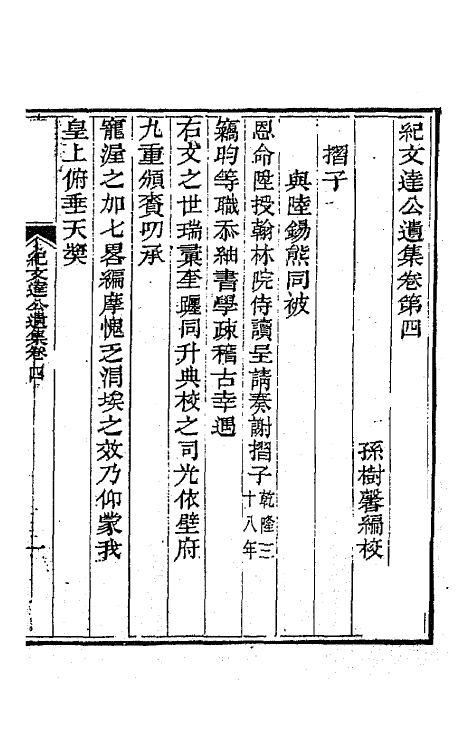 紀文達公遺集卷第四
孫樹馨編校
摺子
與陸錫熊同被
恩命陞授翰林院侍讀呈請奏謝摺子乾隆三十八年
竊昀等職忝紬書學疎稽古幸遇
右文之世瑞彚奎躔同升典校之司光依壁府
九重頒賚叨承
寵渥之加七畧編摩愧乏涓埃之效乃仰蒙我
皇上俯垂天奬
紀文達公遺集卷四
一